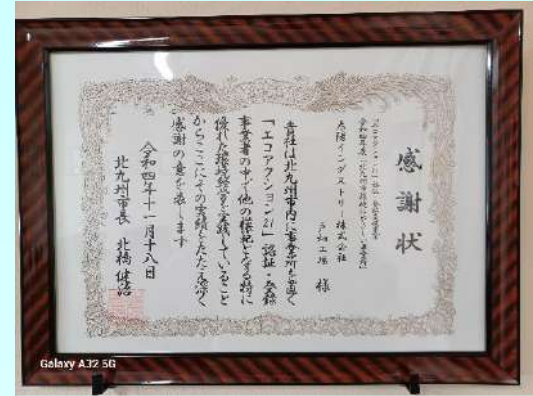 感謝状
太陽インダストリー株式会社
戸畑工場 様
貴社は北九州市内に事業所を置く
「エコアクション21」認証・登録
事業者の中で他の模範となる特に
優れた環境経営を実践していること
からここにその実績をたたえ深く
感謝の意を表します
令和四年十一月十八日
北九州市長 北橋健治
Galaxy A32 5G